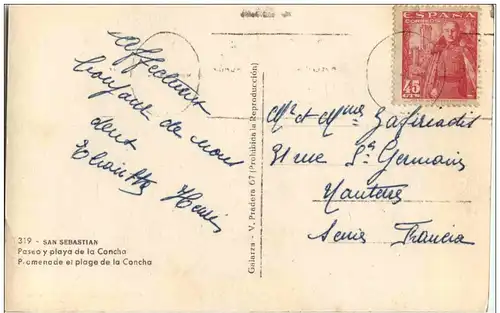 ESPAÑA
45
CTS
affectueux
bonjour de nous
deux
Henri
Mr et Mme Zafiriadis
31 rue St Germain
Nanterre
Seine Francia
Galarza - V. Pradera 67 (Prohibida la Reproducción)
319 - SAN SEBASTIAN
Paseo y playa de la Concha
Promenade et plage de la Concha